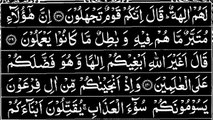 لَهُمْ اٰلِهَةٌ ؕ قَالَ اِنَّكُمْ قَوْمٌ تَجْهَلُوْنَ ﴿۱۳۸﴾ اِنَّ هٰۤؤُلَآءِ
مُتَبَّرٌ مَّا هُمْ فِیْهِ وَ بٰطِلٌ مَّا كَانُوْا یَعْمَلُوْنَ ﴿۱۳۹﴾
قَالَ اَغَیْرَ اللّٰهِ اَبْغِیْكُمْ اِلٰهًا وَّ هُوَ فَضَّلَكُمْ
عَلَی الْعٰلَمِیْنَ ﴿۱۴۰﴾ وَ اِذْ اَنْجَیْنٰكُمْ مِّنْ اٰلِ فِرْعَوْنَ
یَسُوْمُوْنَكُمْ سُوْٓءَ الْعَذَابِ ۚ یُقَتِّلُوْنَ اَبْنَآءَكُمْ